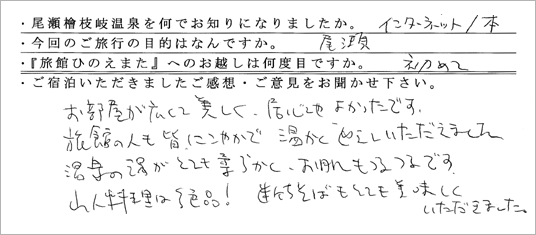 ・尾瀬檜枝岐温泉を何でお知りになりましたか。 インターネット/本
・今回のご旅行の目的はなんですか。 尾瀬
・『旅館ひのえまた』へのお越しは何度目ですか。 初めて
・ご宿泊いただきましたご感想・ご意見をお聞かせ下さい。
お部屋が広くて美しく、居心地よかったです。
旅館の人も皆、にこやかで温かく迎えていただきました。
温泉の湯がとても柔らかく、お肌もつるつるです。
山人料理は絶品！ 裁ちそばもとても美味しく
いただきました。